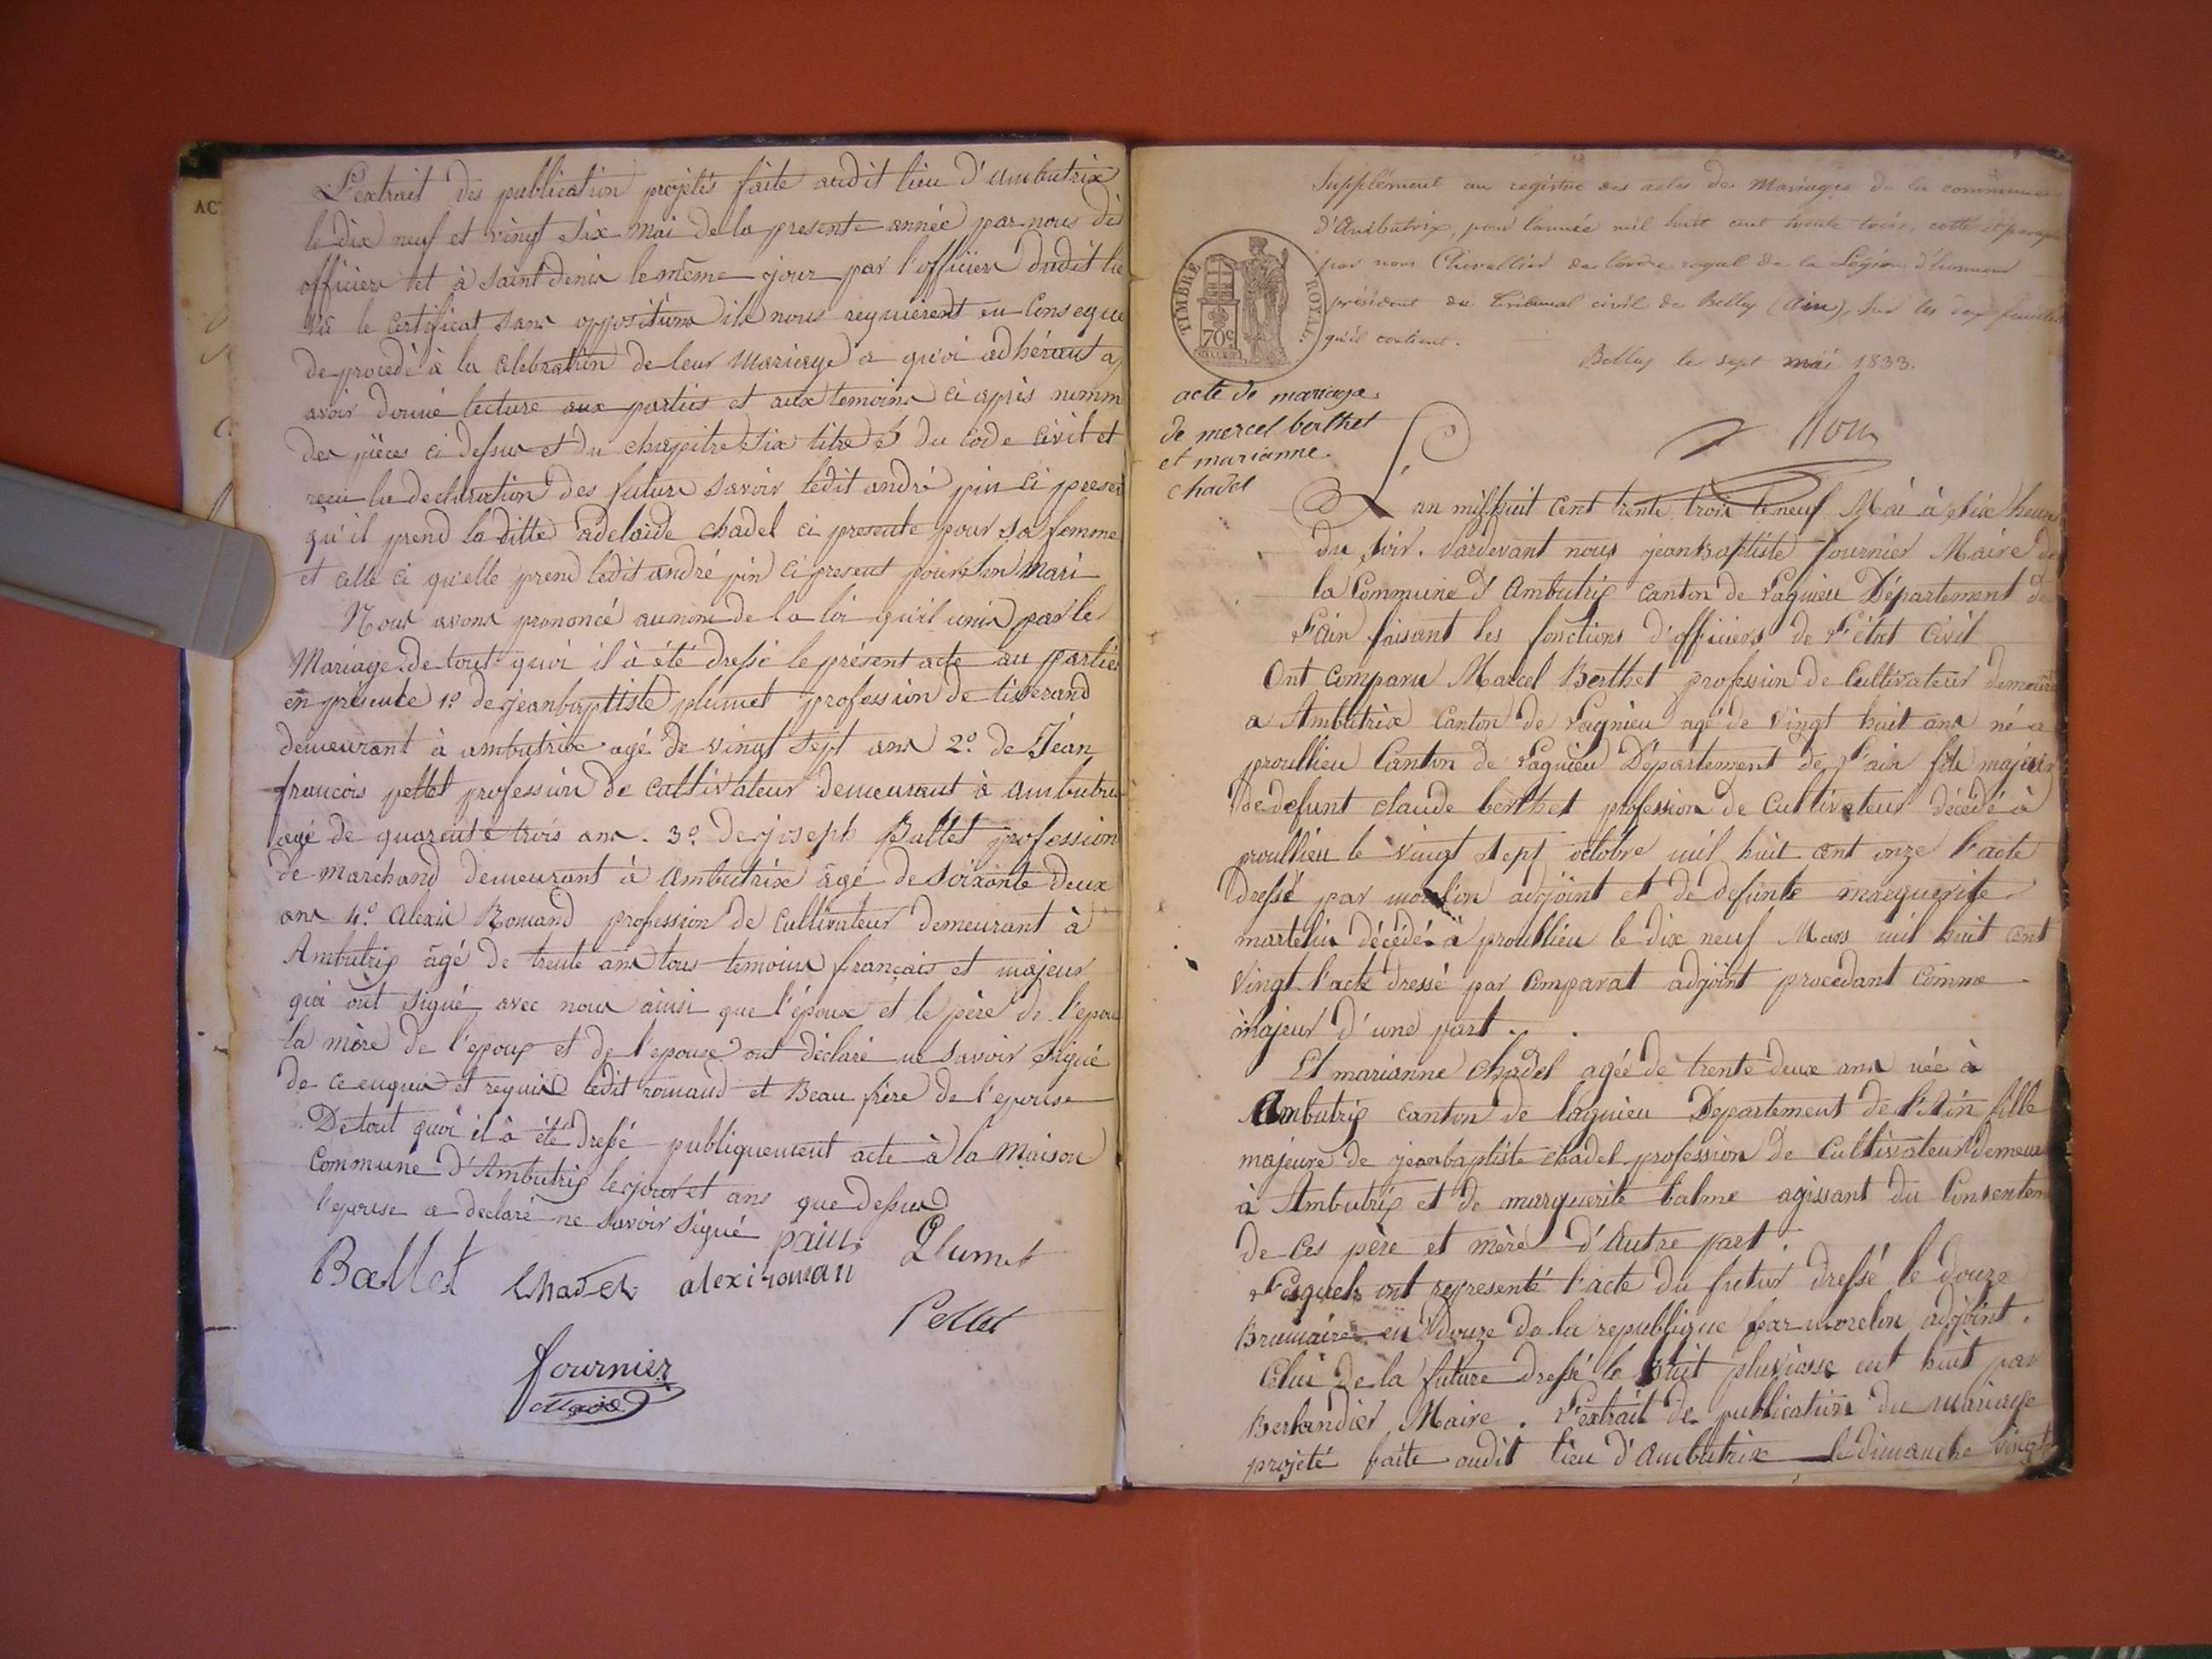 AC
L'extrait des publication projetés faite audit lieu d'ambutrix
le dix neuf et vingt six mai de la presente année par nous dit
officiers et à saint denis le même jour par l'officiers dudit lie
vu le certificat sans oppositions ils nous requièrent en conseque
de procedé à la celebration de leur mariage a quoi adhérant a
avoir donné lecture aux parties et aux temoins ci après nomm
des pièces ci dessus et du chapitre six titre 5 du code civil et
reçu la declaration des futurs savoir ledit andré pin ci presen
qu'il prend la ditte adelaide chadel ci presente pour sa femme
et celle ci qu'elle prend ledit andré pin ci present pour son mari
Nous avons prononcé au nom de la loi qu'il unis par le
Mariage. de tout quoi il à été dressé le présent acte au parties
en présence 1º de jeanbaptiste plumet profession de tisserand
demeurant à ambutrix agé de vingt sept ans 2º de Jean
francois pettet profession de cultivateur demeurant à ambutrix
agé de quarente trois ans. 3º de joseph Ballet profession
de marchand demeurant à ambutrix âgé de soixante deux
ans 4º alexis Romand profession de cultivateur demeurant à
Ambutrix âgé de trente ans tous temoins français et majeur
qui ont signé avec nous ainsi que l'époux et le père de l'epou
la mère de l'epoux et de l'epouse ont déclaré ne savoir signé
de ce enquis et requis ledit romand et Beau frère de l'epouse
De tout quoi il à été dressé publiquement acte à la Maison
Commune d'Ambutrix les jour et ans que dessus
l'epouse a declaré ne savoir signé
pain Plumet
Ballet Chadel alexi roman
Pettet
fournier
Maire
Supplément au registre des actes de Mariages de la commune
d'Ambutrix, pour l'année mil huit cent trente trois, cotté et paraphé
par nous Chevallier de l'ordre royal de la Légion d'honneur
président du Tribunal civil de Belley (Ain), sur les deux feuillets
qu'il contient.
Belley le sept mai 1833.
TIMBRE ROYAL
70c
acte de mariage
de mercel berthet
et marianne
chadel
L'an mil huit cent trente trois le neuf Mai à six heures
du soir. Pardevant nous jeanbaptiste fournier Maire de
la Commune d'Ambutrix canton de Lagnieu Département de
l'ain faisant les fonctions d'officiers de l'état civil
Ont comparu Marcel Berthet profession de Cultivateur demeura
a Ambutrix canton de Lagnieu agé de vingt huit ans né a
proullieu Canton de Lagnieu Département de l'ain fils majeur
de defunt claude berthet profession de Cultivateur décédé à
proullieu le vingt sept octobre mil huit cent onze l'acte
dressé par adjoint et de defunte marguerite
martelin décédé à proullieu le dix neuf Mars mil huit cent
vingt l'acte dressé par Comparat adjoint procedant comme
majeur d'une part.
Et marianne chadel agée de trente deux ans née à
Ambutrix canton de lagnieu Département de l'Ain fille
majeure de jeanbaptiste chadel profession de Cultivateur demeur
à Ambutrix et de marguerite balme agissant du Consentem
de ces père et mère d'Autre part.
Lesquels ont representé l'acte du futur dressé le douze
Brumaire en douze de la republique par morelon adjoint.
Celui de la future dressé le huit pluviosse ent huit par
Berlandier Maire. L'extrait de publication du mariage
projeté faite audit lieu d'Ambutrix le dimanche vingt